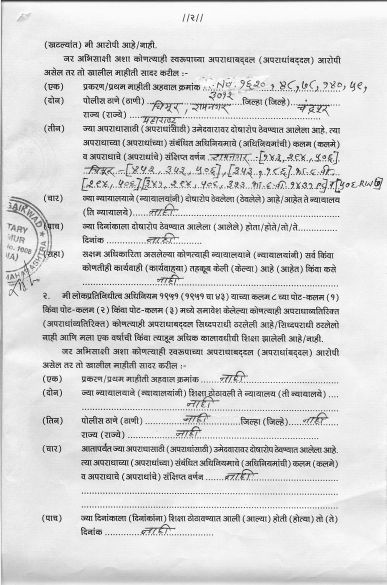 ॥२॥
(खटल्यांत) मी आरोपी आहे/नाही.
जर अभिसाक्षी अशा कोणत्याही स्वरूपाच्या अपराधाबद्दल (अपराधांबद्दल) आरोपी
असेल तर तो खालील माहिती सादर करील :-
(एक) प्रकरण/प्रथम माहिती अहवाल क्रमांक
(दोन) पोलीस ठाणे (ठाणी) चिमूर, रामनगर जिल्हा (जिल्हे) चंद्रपूर
राज्य (राज्ये) महाराष्ट्र
(तीन) ज्या अपराधासाठी (अपराधांसाठी) उमेदवारावर दोषारोप ठेवण्यात आलेला आहे. त्या
अपराधाच्या (अपराधांच्या) संबंधित अधिनियमाचे (अधिनियमांची) कलम (कलमे)
व अपराधाचे (अपराधांचे) संक्षिप्त वर्णन रामनगर
चिमूर
(चार) ज्या न्यायालयाने (न्यायालयांनी) दोषारोप ठेवलेला (ठेवलेले) आहे/आहेत ते न्यायालय
(ती न्यायालये) नाही
(पाच) ज्या दिनांकाला दोषारोप ठेवण्यात आलेला (आलेले) होता/होते/तो/ते
दिनांक नाही
(सहा) सक्षम अधिकारिता असलेल्या कोणत्याही न्यायालयाने (न्यायालयांनी) सर्व किंवा
कोणतीही कार्यवाही (कार्यवाह्या) तहकूब केली (केल्या) आहे (आहेत) किंवा कसे
नाही
२. मी लोकप्रतिनिधीत्व अधिनियम १९५१ (१९५१ चा ४३) याच्या कलम ८ च्या पोट-कलम (१)
किंवा पोट-कलम (२) किंवा पोट-कलम (३) मध्ये समावेश केलेल्या कोणत्याही अपराधाव्यतिरिक्त
(अपराधांव्यतिरिक्त) कोणत्याही अपराधाबद्दल सिध्दपराधी ठरलेली आहे/सिध्दपराधी ठरलेलो
नाही आणि मला एक वर्षाची किंवा त्याहून अधिक कालावधीची शिक्षा झालेली आहे/नाही.
जर अभिसाक्षी अशा कोणत्याही स्वरूपाच्या अपराधाबद्दल (अपराधांबद्दल) आरोपी
असेल तर तो खालील माहिती सादर करील :-
(एक) प्रकरण/प्रथम माहिती अहवाल क्रमांक नाही
(दोन) ज्या न्यायालयाने (न्यायालयांनी) शिक्षा ठोठावली ते न्यायालय (ती न्यायालये)
नाही
(तिन) पोलीस ठाणे (ठाणी) नाही जिल्हा (जिल्हे) नाही
राज्य (राज्ये) नाही
(चार) आतापर्यंत ज्या अपराधासाठी (अपराधांसाठी) उमेदवारावर दोषारोप ठेवण्यात आलेला आहे.
त्या अपराधाच्या (अपराधांच्या) संबंधित अधिनियमाचे (अधिनियमांची) कलम (कलमे)
व अपराधाचे (अपराधांचे) संक्षिप्त वर्णन नाही
(पाच) ज्या दिनांकाला (दिनांकांना) शिक्षा ठोठावण्यात आली (आल्या) होती (होत्या) तो (ते)
दिनांक नाही